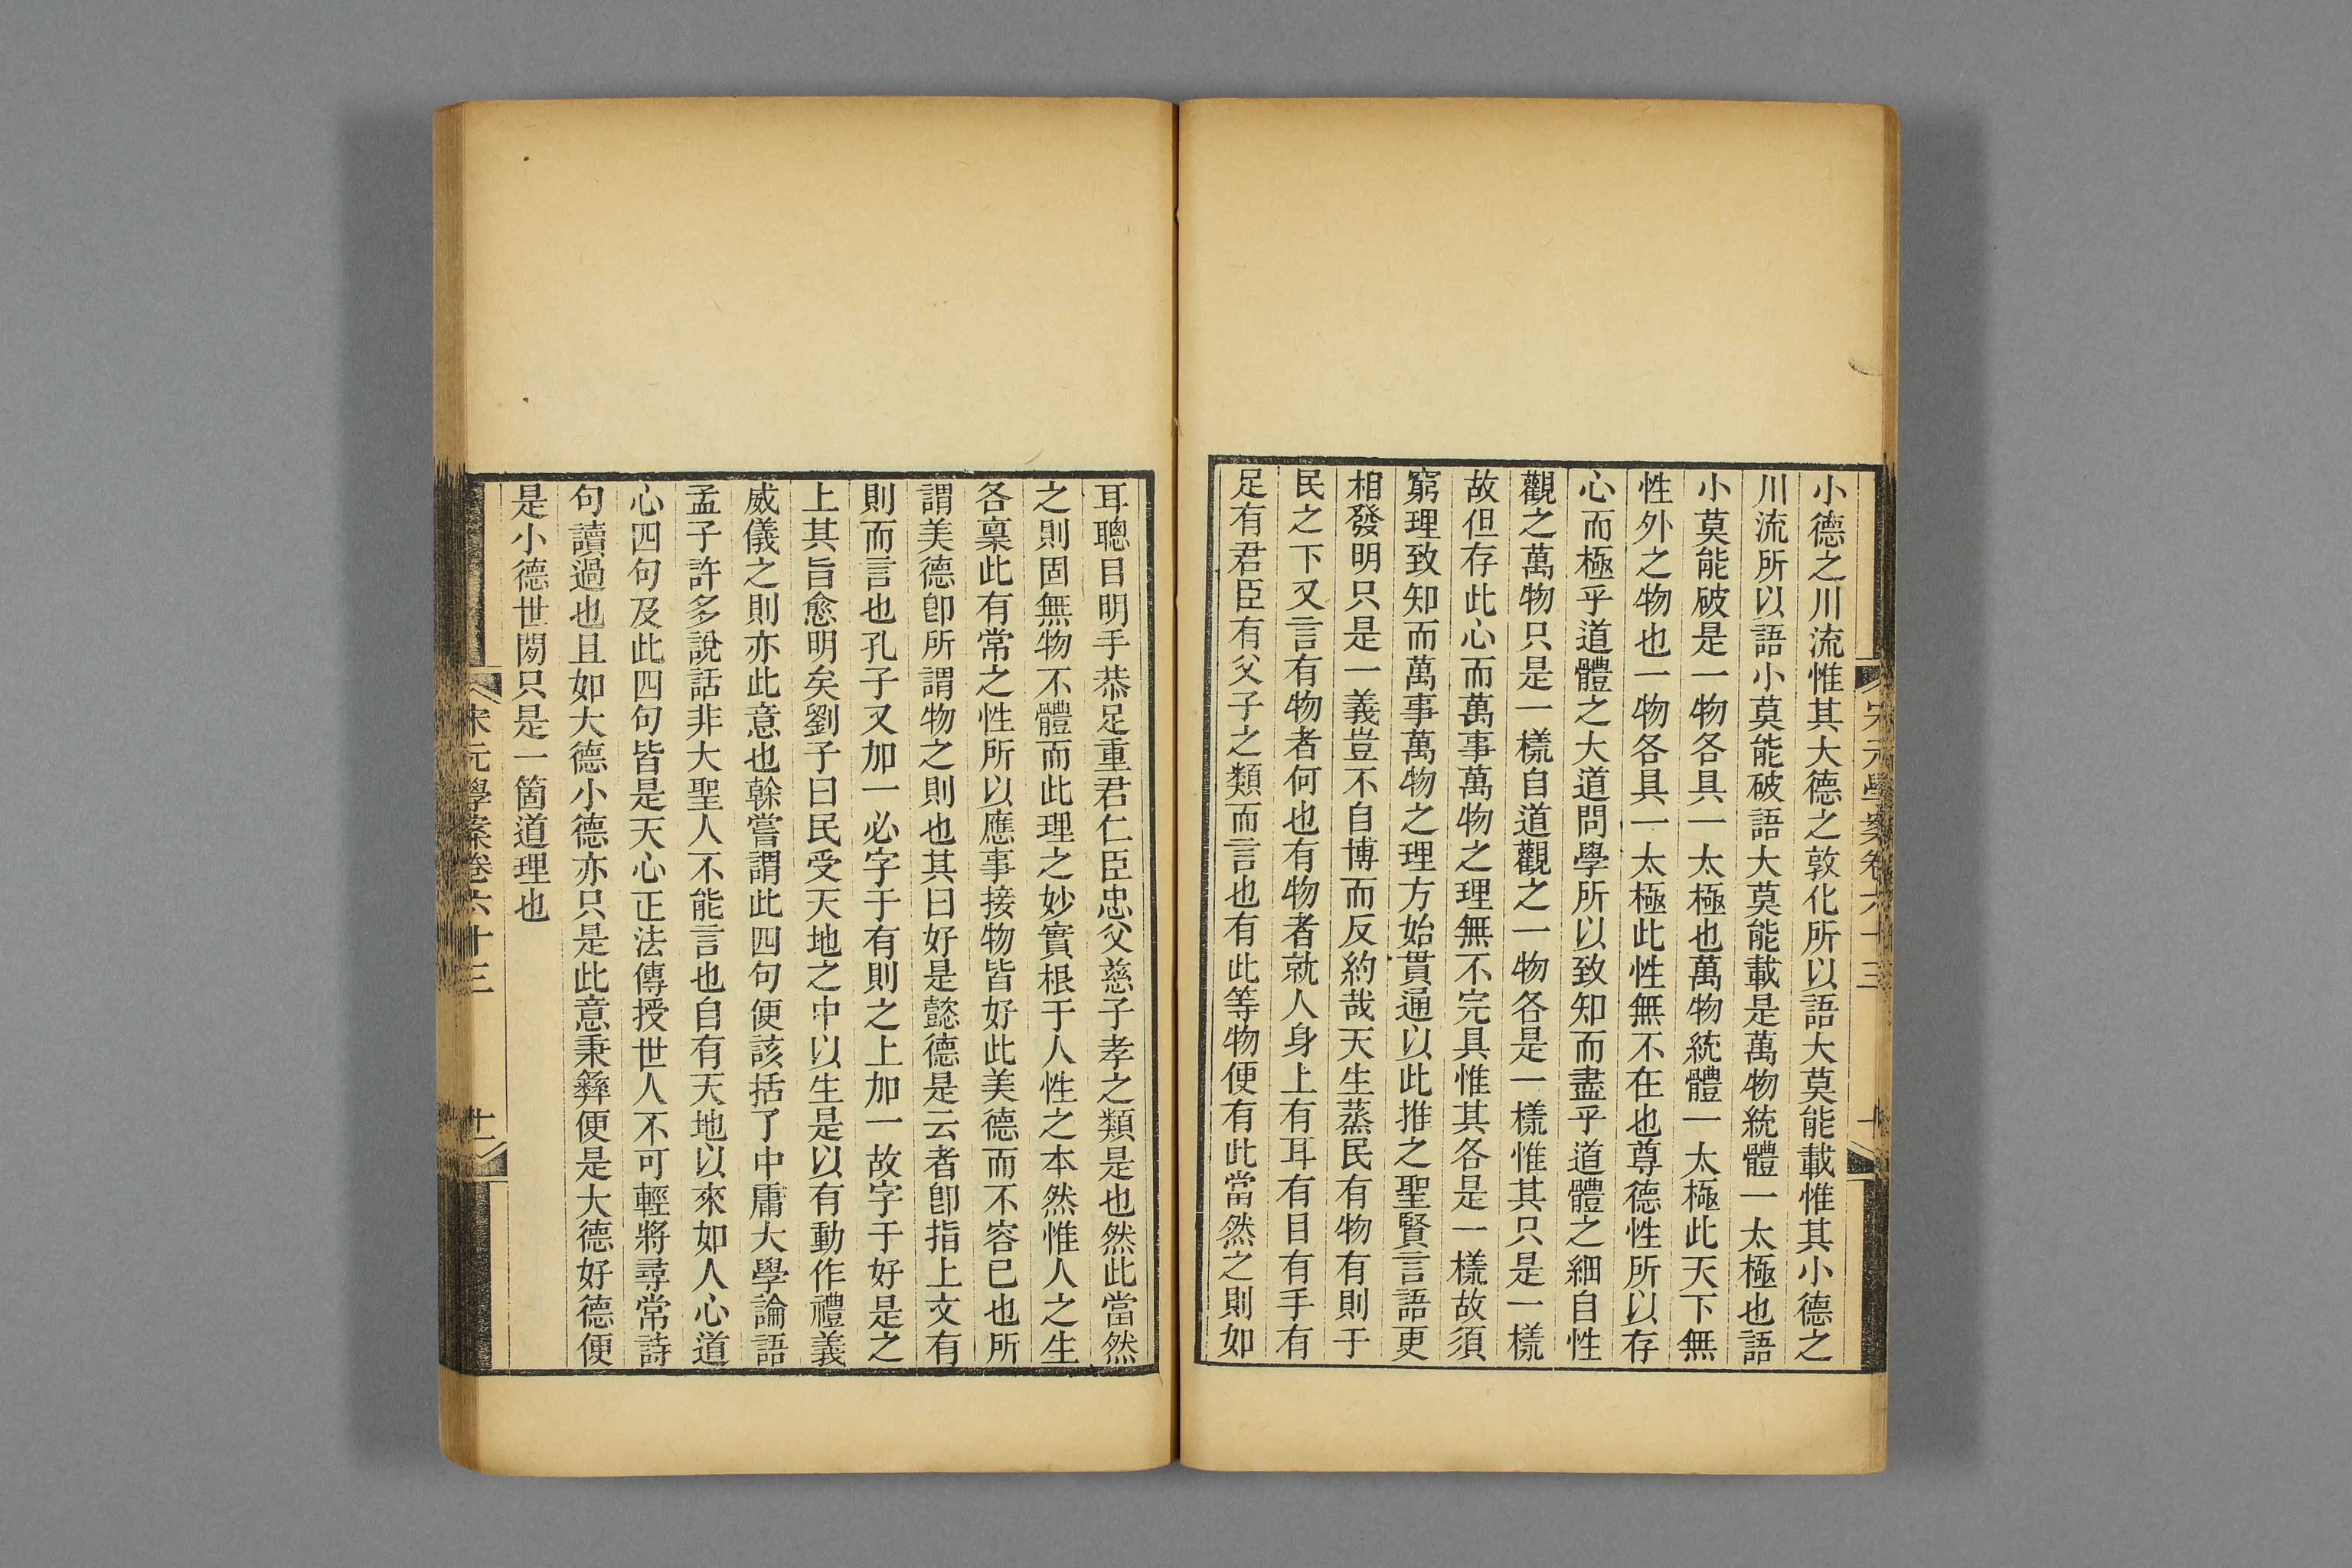 宋元學案卷六十三
十
小德之川流惟其大德之敦化所以語大莫能載惟其小德之
川流所以語小莫能破語大莫能載是萬物統體一太極也語
小莫能破是一物各具一太極也萬物統體一太極此天下無
性外之物也一物各具一太極此性無不在也尊德性所以存
心而極乎道體之大道問學所以致知而盡乎道體之細自性
觀之萬物只是一㨾自道觀之一物各是一樣惟其只是一樣
故但存此心而萬事萬物之理無不完具惟其各是一樣故須
窮理致知而萬事萬物之理方始貫通以此推之聖賢言語更
相發明只是一義豈不自博而反約哉天生蒸民有物有則于
民之下又言有物者何也有物者就人身上有耳有目有手有
足有君臣有父子之類而言也有此等物便有此當然之則如
耳聰目明手恭足重君仁臣忠父慈子孝之類是也然此當然
之則固無物不體而此理之妙實根于人性之本然惟人之生
各稟此有常之性所以應事接物皆好此美德而不容已也所
謂美德卽所謂物之則也其曰好是懿德是云者卽指上文有
則而言也孔子又加一必字于有則之上加一故字于好是之
上其旨愈明矣劉子曰民受天地之中以生是以有動作禮義
威儀之則亦此意也榦嘗謂此四句便該括了中庸大學論語
孟子許多說話非大聖人不能言也自有天地以來如人心道
心四句及此四句皆是天心正法傳授世人不可輕將尋常詩
句讀過也且如大德小德亦只是此意秉彝便是大德好德便
是小德世閒只是一箇道理也
宋元學案卷六十三
十一